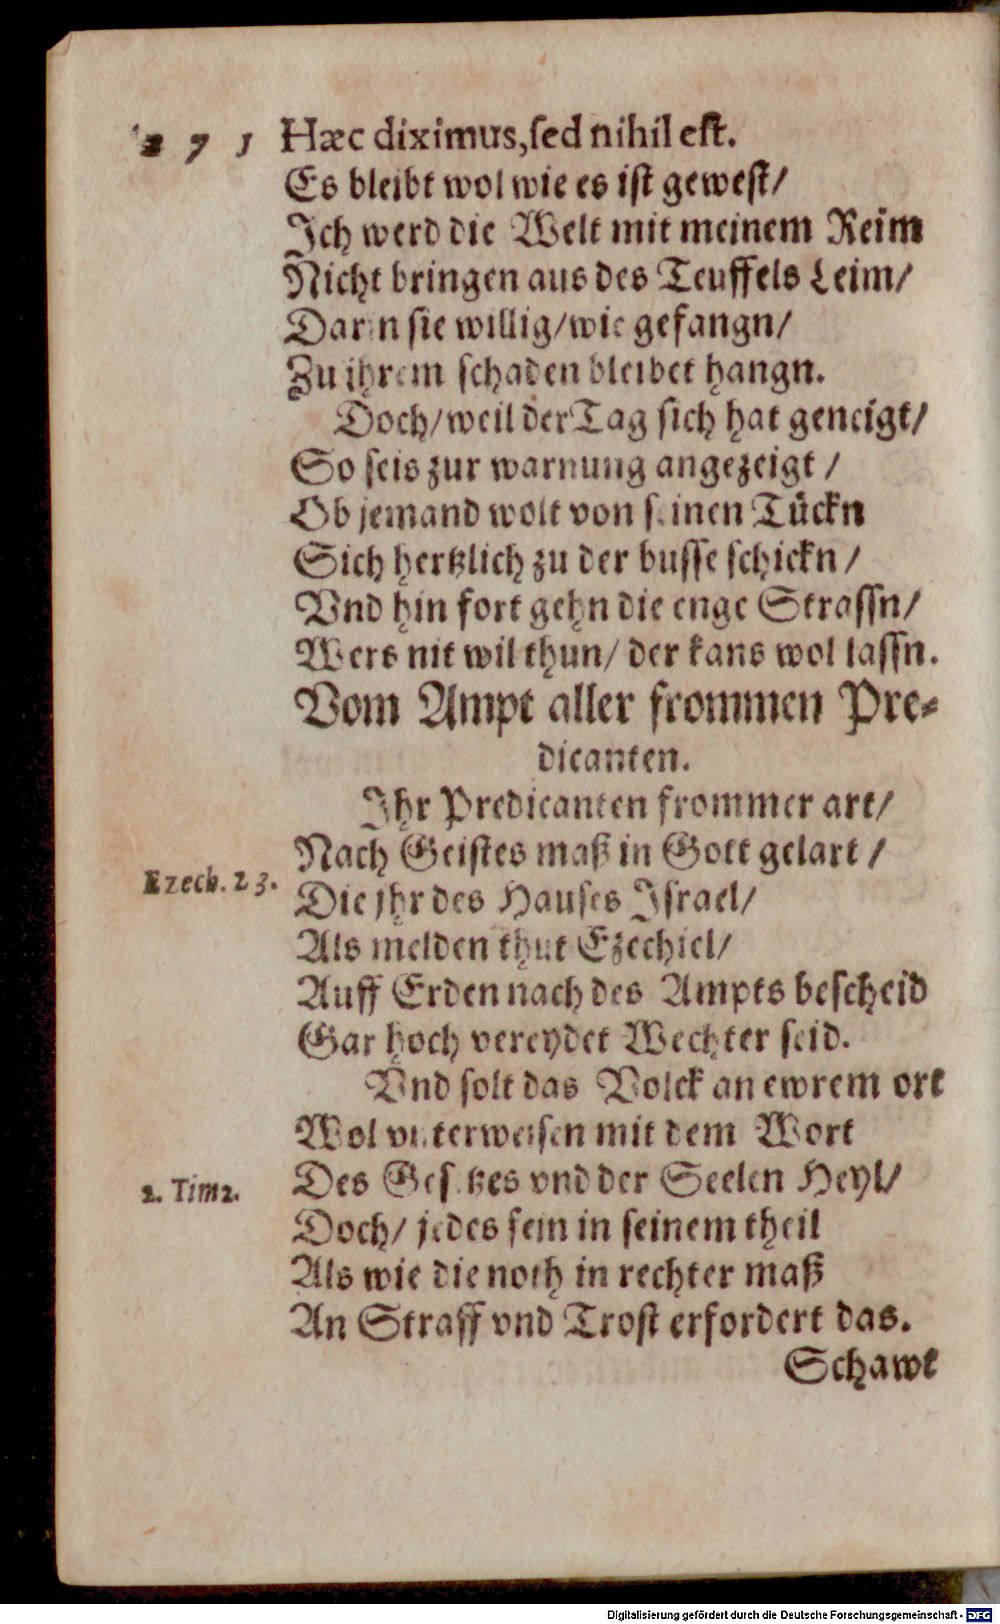 2 7 1 Hæc diximus, sed nihil est.
Es bleibt wol wie es ist gewest/
Ich werd die Welt mit meinem Reim
Nicht bringen aus des Teuffels Leim/
Darin sie willig/wie gefangn/
Zu ihrem schaden bleibet hangn.
Doch/weil der Tag sich hat geneigt/
So seis zur warnung angezeigt /
Ob jemand wolt von seinen Tückn
Sich hertzlich zu der busse schickn /
Vnd hin fort gehn die enge Strassn/
Wers nit wil thun/ der kans wol lassn.
Vom Ampt aller frommen Pre-
dicanten.
Ihr Predicanten frommer art/
Nach Geistes maß in Gott gelart /
Ezech. 23. Die jhr des Hauses Israel/
Als melden thut Ezechiel/
Auff Erden nach des Ampts bescheid
Gar hoch vereydet Wechter seid.
Vnd solt das Volck an ewrem ort
Wol vnterweisen mit dem Wort
2. Tim 2. Des Gesetzes vnd der Seelen Heyl/
Doch/ jedes fein in seinem theil
Als wie die noth in rechter maß
An Straff vnd Trost erfordert das.
Schawt
Digitalisierung gefördert durch die Deutsche Forschungsgemeinschaft - DFG